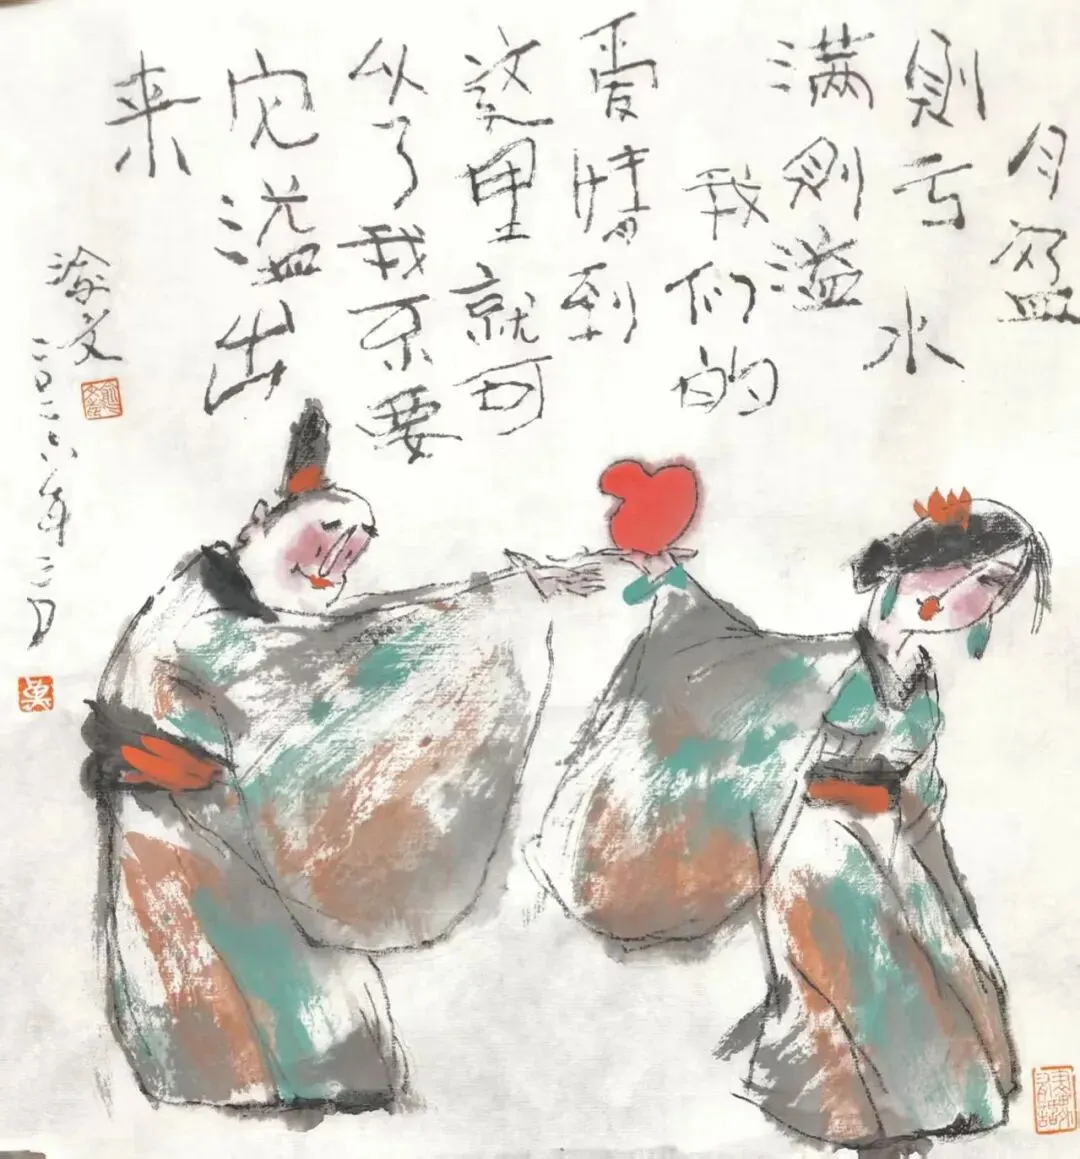 月盈
則亏水
满则溢
我们的
爱情到
这里就可
以了我不要
它溢出
来
渝文
二〇二六年二月